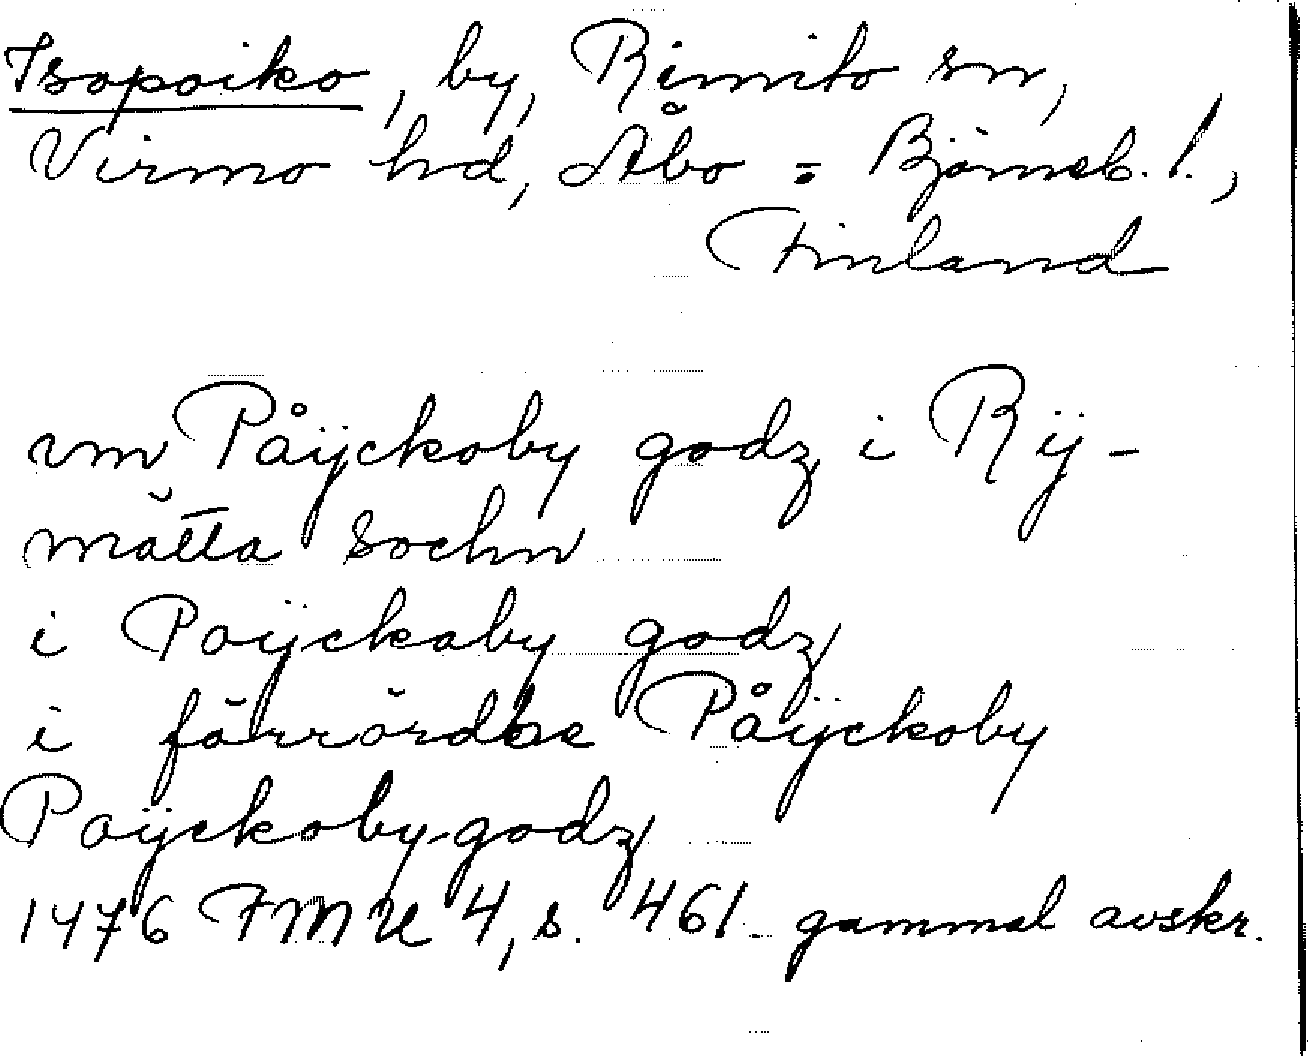 Isopoiko, by, Rimito sn,
Virmo hd, Åbo = Björneb. l.,
Finland
vm Påÿckoby godz i Rÿ-
mätta sochn
i Poÿckaby godz
i förrördhe Påÿckoby
Poÿckoby godz
1476 FMU 4, s. 461. gammal avskr.